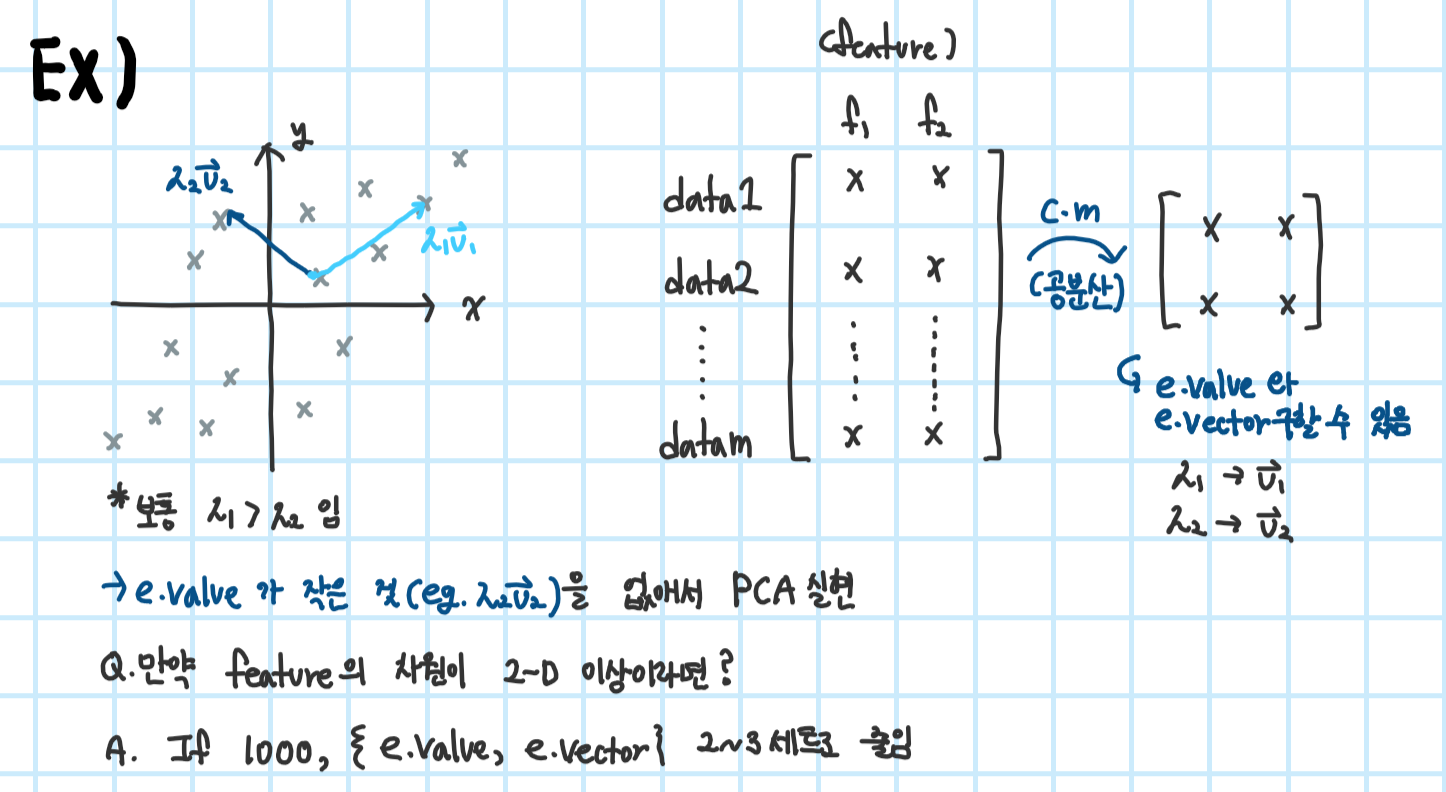 Ex)
y
λ₂v⃗₂
λ₁v⃗₁
x
*보통 λ₁>λ₂ 임
(feature)
f₁ f₂
data1 x x
data2 x x
datam x x
C.m
(공분산)
x x
x x
e.value 와
e.vector구할 수 있음
λ₁ → v⃗₁
λ₂ → v⃗₂
→ e.value 가 작은 것(eg. λ₂v⃗₂)을 없애서 PCA 실현
Q.만약 feature의 차원이 2-D 이상이라면?
A. If 1000, {e.value, e.vector} 2~3세트로 줄임